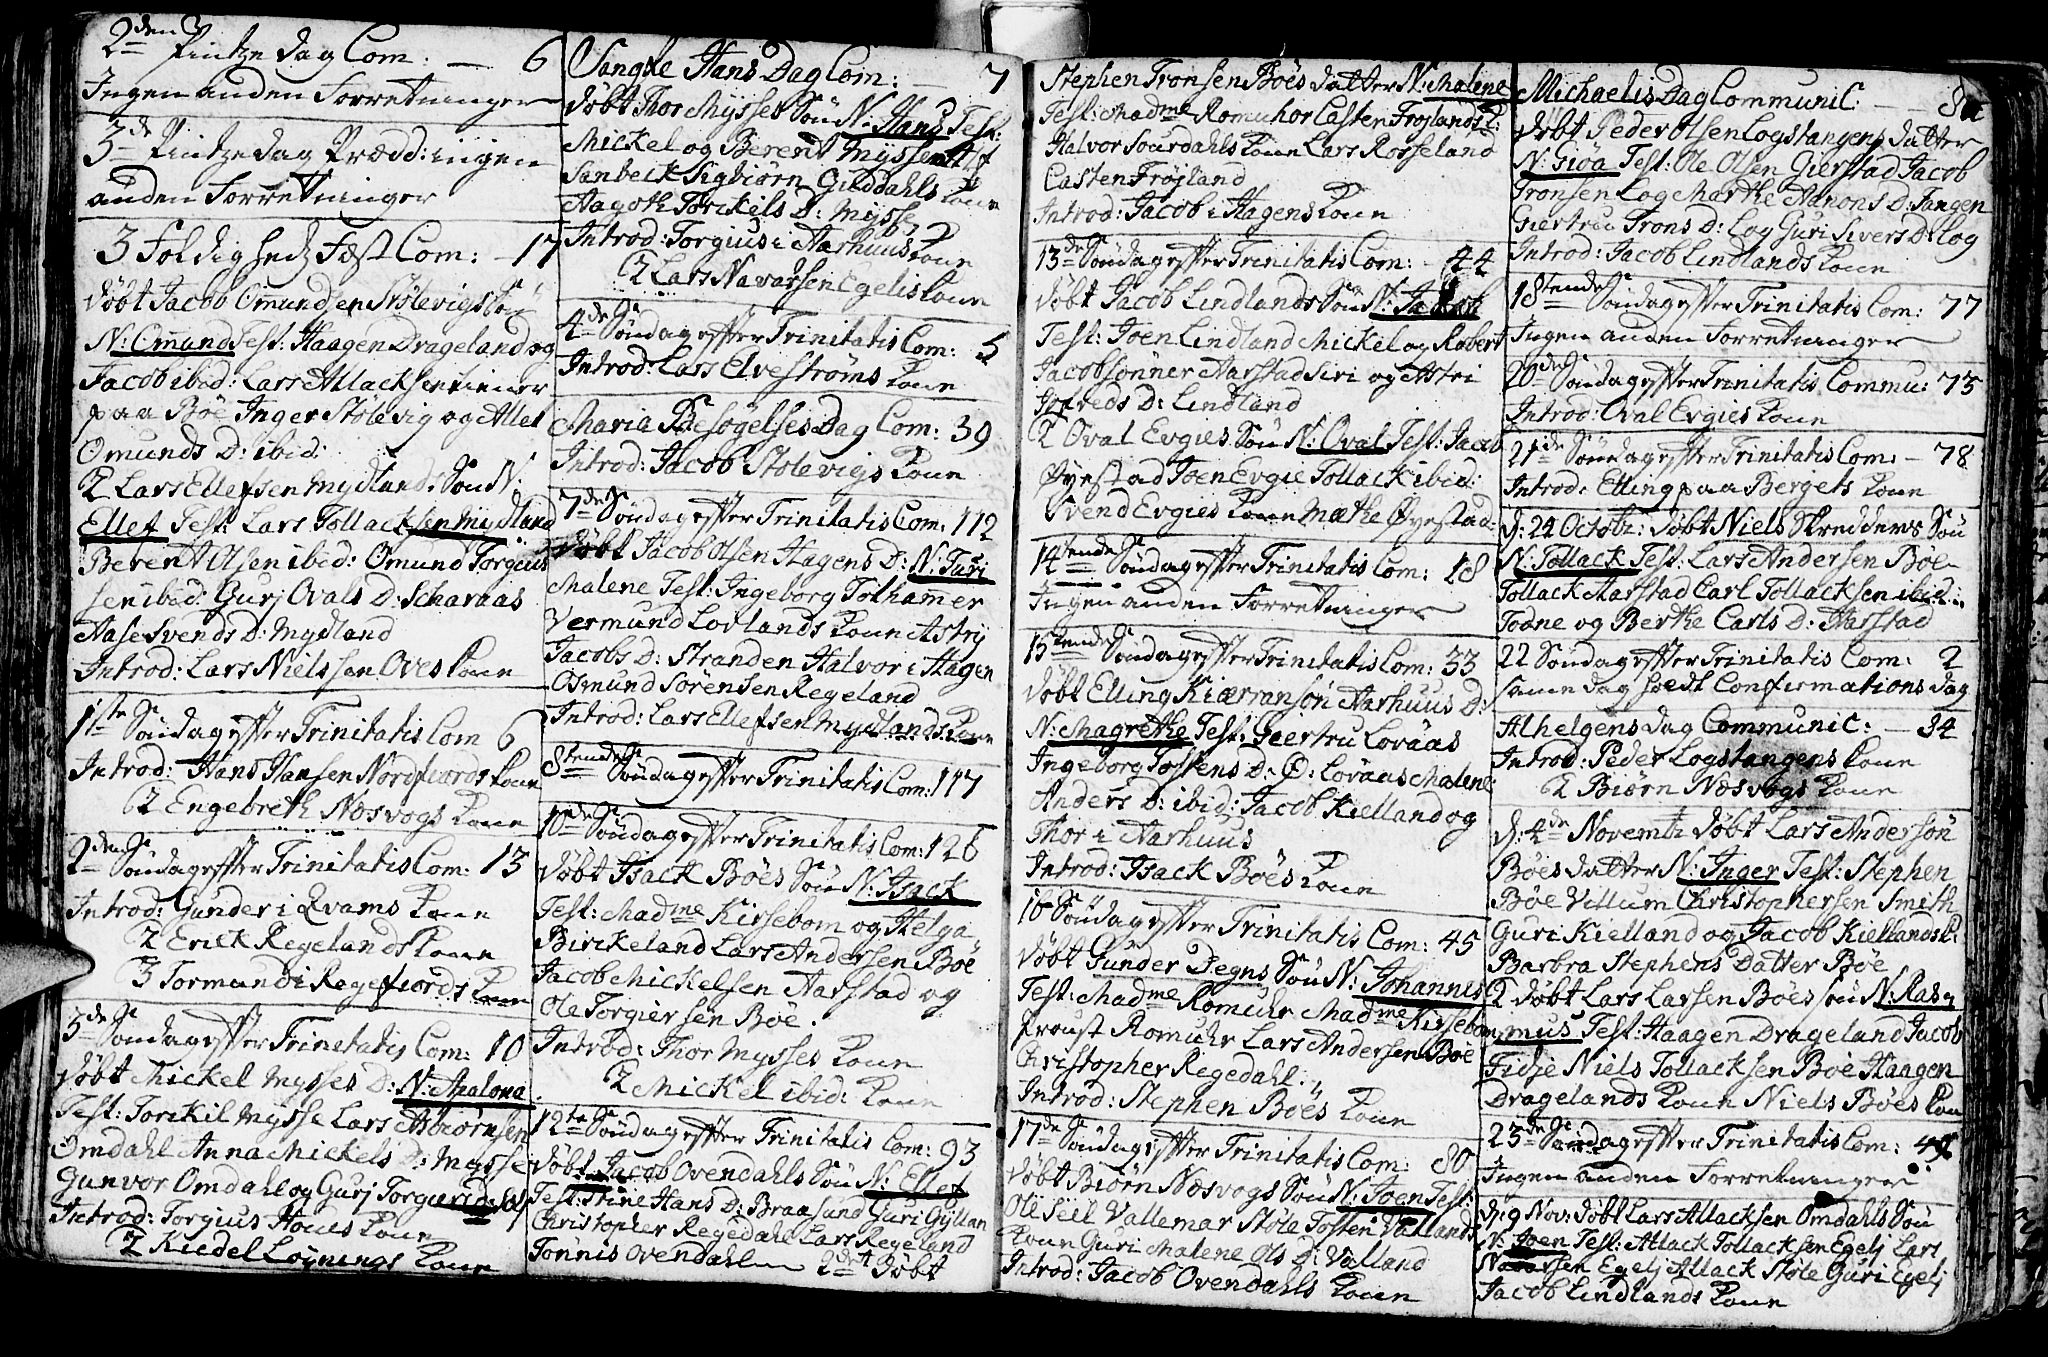 2den Pintze dag Com: — 6
Ingen anden Forretninger
3de Pintzedag Prædd: ingen
anden Forrettninger
3 Foldighedz Fæst Com: — 17
døbt Jacob Omundsen Stølevigs Sön
N: Omund Test: Haagen Drageland og
Jacob ibid: Lars Atlacksen tiener
paa Böe Inger Stölevig og Allet
Omunds D: ibid:
2 Lars Ellefsen Mydlands Sön N:
Ellef Test: Lars Tollacksen Mydland
Berent Olsen ibid: Omund Torgius
sen ibid: Gurj Ovals D: Scharaas
Aase Svends D: Mydland
Introd: Lars Nielssen Oves Kone
1ste Söndag effter Trinitatis Com 6
Introd: Hans Hansen Nordfiords Kone
2 Engebreth Næsvogs Kone
2den Söndag effter Trinitatis Com: 13
Introd: Gunder i Qvams Kone
2 Erick Regelands Kone
3 Tormund i Regefiords Kone
3de Söndag effter Trinitatis Com: 10
døbt Mickel Mysses D: N: Malona
Test: Torckil Mysse Lars Asbiørnsen
Omdahl Anna Mickels D: Mysse
Gunvor Omdahl og Gurj Torguridalss
Introd: Torgius Houes Kone
2 Kiedel Löynings Kone
Sangte Hans Dag Com: — 7
døbt Thor Mysses Sön N: Hans Test:
Mickel og Berent Myssen Alf
Sanbeck Sigbiørn Gulddahls Kone
Aagoth Torckels D: Mysse
Introd: Torgius i Aarhuus Kone
2 Lars Navarsen Egelis Kone
4de Söndag effter Trinitatis Com: 5
Introd: Lars Elvestrøms Kone
Maria Besøgelses Dag Com: 39
Introd: Jacob Stolevigs Kone
7de Söndag effter Trinitatis Com: 112
Døbt Jacob Olsen Hagens D: N: Turi
Malene Test: Ingeborg Tolhamer
Vermund Lovlands Kone Astrj
Jacobs D: Stranden Halvor i Hagen
Osmund Sörensen Regeland
Introd: Lars Ellefsen Mydlands Kone
8tende Söndag effter Trinitatis Com: 117
10de Söndag effter Trinitatis Com: 126
døbt Isack Böes Sön N: Isack
Test: Madme Kirsebom og Helga
Birckeland Lars Andersen Böe
Jacob Mickelsen Aarstad og
Ole Torgiersen Böe.
Introd: Thor Mysses Kone
2 Mickel ibid: Kone
12te Söndag effter Trinitatis Com: 93
døbt Jacob Ovendahls Sön N: Ellef
Test: Trine Hans D: Braasund Guri Gyllan
Christopher Regedahl Lars Regeland
Tønnis Ovendahl 2det Döbt
Stephen Tronsen Böes datter N: Malene
Test: Madme Romuhor Casten Frøjlands K:
Halvor Sourdahls Kone Lars Rosseland
Casten Frøjland
Introd: Jacob i Hagens Kone
13de Söndag effter Trinitatis Com: 44
døbt Jacob Lindlands Sön N: Jacob
Test: Joen Lindland Mickel og Robert
Jacobsønner Aarstad Siri og Astri
Jofreds D: Lindland
2 Oval Evgies Sön N: Oval Test: Jacob
Øyestad Joen Evgie Tollack ibid:
Svend Evgies Kone Mæthe Øyestad:
14tende Söndag effter Trinitatis Com: 18
Ingen anden Forretninger
15tende Söndag effter Trinitatis Com: 33
døbt Elling Kiærransøn Aarhuus D:
N: Magrethe Test: Giertru Lovaas
Ingeborg Tostens D: Ø: Lovaas Malene
Anders D: ibid: Jacob Kielland og
Thor i Aarhuus
Introd: Isack Böes Kone
16 Söndag effter Trinitatis Com: 45
døbt Gunder Degns Sön N: Johannes
Test: Madme Romuhr Madme Kirsebom
Proust Romuhr Lars Andersen Böe
Christopher Regedahl.
Introd: Stephen Böes Kone
17de Söndag effter Trinitatis Com: 80
døbt Biørn Næsvogs Sön N: Joen Test:
Ole Seil Vallemar Støle Tosten Vallands
Kone Guri Malene Ols D: Valland
Introd: Jacob Ovendahls Kone
Michaelis Dag Communic: — 80
døbt Peder Olsen Logstangens datter
N: Giøa Test: Ole Olsen Gierstad Jacob
Tronsen Log Marthe Aanons D: Tangen
Giertru Trons D: Log Guri Sivers D: Log
Introd: Jacob Lindlands Kone
18tende Söndag effter Trinitatis Com: 77
Ingen anden Forretninger
20de Söndag effter Trinitatis Commu: 73
Introd: Oval Evgies Kone
21de Söndag effter Trinitatis Com: — 78
Introd: Elling paa Bergets Kone
d: 24 Octobr: døbt Niels Skredders Sön
N: Tollack Test: Lars Andersen Böe
Tollack Aarstad Carl Tollacksen ibid:
Todne og Berthe Carls D: Aarstad
22 Söndag effter Trinitatis Com: 2
samme dag hoedt Confirmations dag
Alhelgens dag Communic: — 34
Introd: Peder Logstangens Kone
2 Biørn Næsvogs Kone
d: 4de Novembr døbt Lars Andersön
Böes datter N: Inger Test: Stephen
Böe Villum Christophersen Smith
Guri Kielland og Jacob Kiellands K:
Barbra Stephens Datter Böe
2 døbt Lars Larsen Böes sön N: Ras
mus Test: Haagen Drageland Jacob
Fidje Niels Tollacksen Böe Haagen
Dragelands Kone Niels Böes Kone
23de Söndag effter Trinitatis Com: 49
Ingen anden Forretninger
d: 9 Nov: døbt Lars Atlacksen Omdahls Sön
N: Joen Test: Atlack Tollacksen Egelj Lars
Navarsen Egelj Atlack Støle Guri Egelj
Jacob Lindlands Kone